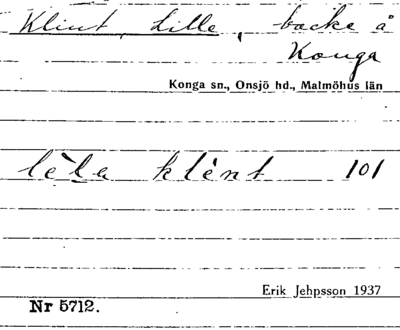 Klint, Lille, backe å
Konga
Konga sn., Onsjö hd., Malmöhus län
lè̱la klènt 101
Erik Jehpsson 1937
Nr 5712.